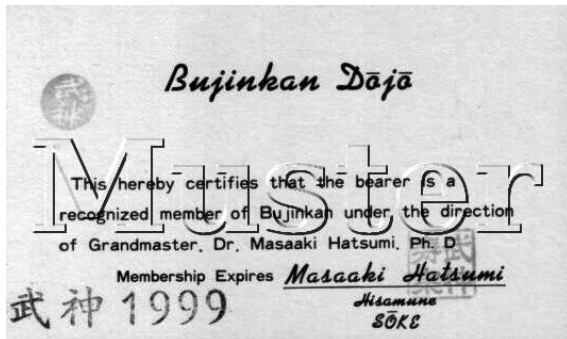 Bujinkan Dōjō
武神
Muster
This hereby certifies that the bearer is a
recognized member of Bujinkan under, the direction
of Grandmaster. Dr. Masaaki Hatsumi. Ph. D
Membership Expires Masaaki Hatsumi
Hisamune
武神 1999
SŌKE